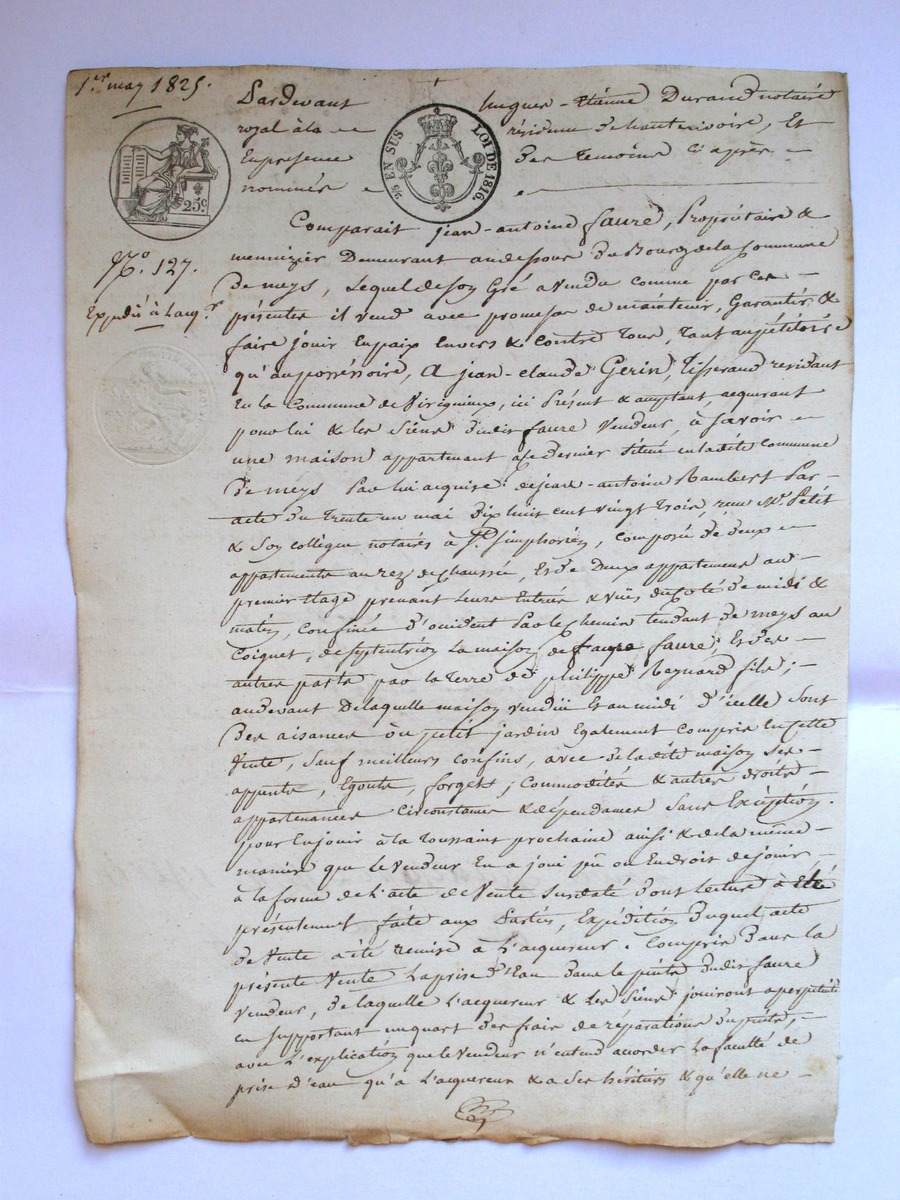 1.er may 1825.
Pardevant hugues-Etienne Durand notaire
royal à la résidence de hauterivoire, Et
En presence des temoins ci après
nommés
25 EN SUS LOI DE 1816.
25c.
N.o 127.
Expédié à l'acq.r
Comparait jean-antoine faure, Propriétaire &
menuizier Demeurant audessous du Bourg de la Commune
de meys, Lequel de son Gré a vendu comme par ces
présentes il vend avec promesse de maintenir, Garantir, &
faire jouir En paix Envers & Contre Tous, tant au pétitoire
qu'au possessoire, A jean-claude Gerin, Tisserand residant
En la Commune de Viregnieux, ici Présent & acceptant, acquerant
pour lui & les Siens dudit faure Vendeur, à Savoir
une maison appartenant à ce dernier Située en la dite Commune
de meys Par lui acquise de jean-antoine Rambert Par
acte du trente un mai dix huit cent vingt trois, reçu M.e Petit
& Son collègue notaires à S.t Simphorien, Composée de deux
appartements au rez de chaussée, Et de Deux appartements au
premier Etage prenant leurs Entrées & vües du Coté de midi &
matin, Confinée d'occident Par le chemin tendant de meys au
Coignet, de septentrion La maison de faure; Et des
autres parts par la terre de philippe Reynard fils;
audevant De laquelle maison vendüe Et au midi d'icelle sont
Des aisances où petit jardin Egalement compris En cette
Vente, Sauf meilleurs confins, avec de la dite maison Ses
appents, Egouts, forgets, Commodités & autres droits
appartenances Circonstances & dépendances Sans Exception.
pour En jouir à la Toussaint prochaine ainsi & de la même
maniere que le Vendeur En a joui pû ou En droit de jouir
à la forme de l'acte de Vente Susdaté dont lecture à Eté
présentement faite aux Parties, Expédition duquel acte
de Vente a été remise à L'acquereur. Compris Dans la
présente Vente La prise d'Eau Dans le puits dudit faure
Vendeur, de laquelle l'acquereur & les Siens jouiront a perpétuité
en Supportant un quart des frais de réparations du puits,
avec L'explication que le Vendeur n'entend accorder La faculté de
prise d'eau qu'à L'acquereur & a Ses héritiers & qu'elle ne